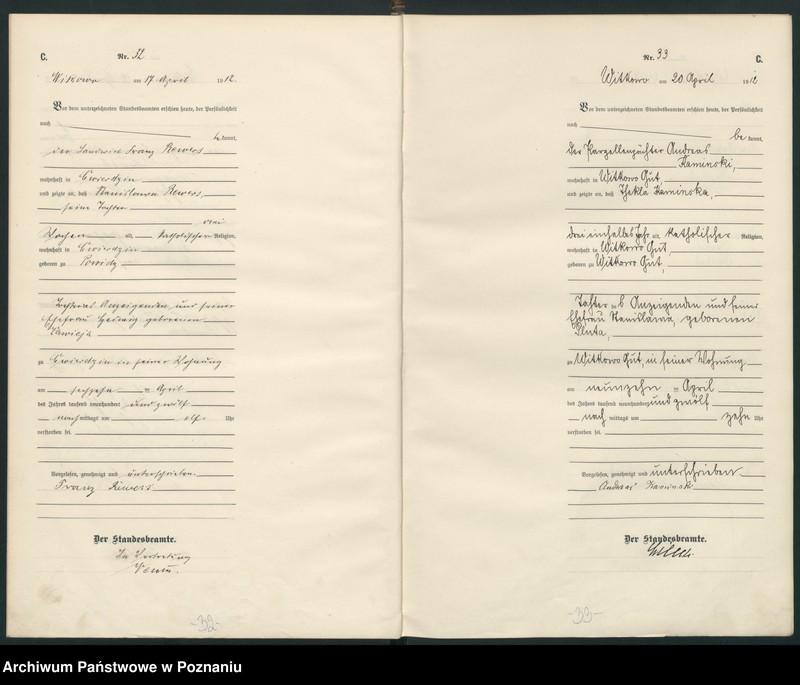 C.
Nr. 32
Witkowo am 17 April 1912.
Vor dem unterzeichneten Standesbeamten erschien heute, der Persönlichkeit
nach
be kannt,
der Landwirt Franz Rewers
wohnhaft in Gwierdzin
und zeigte an, daß Stanislawa Rewers,
seine Tochter
drei
Wochen alt, katholischer Religion,
wohnhaft in Gwierdzin
geboren zu Powidz
Tochter des Anzeigenden und seiner
Ehefrau Hedwig geborenen
zu Gwierdzin in seiner Wohnung
am sechzehn ten April
des Jahres tausend neunhundert und zwölf
nach mittags um elf Uhr
verstorben sei.
Vorgelesen, genehmigt und unterschrieben
Franz Rewers
Der Standesbeamte.
In Vertretung
-32-
Nr. 33
C.
Witkowo am 20 April 1912
Vor dem unterzeichneten Standesbeamten erschien heute, der Persönlichkeit
nach
be kannt,
der Parzellenpächter Andreas
Kaminski,
wohnhaft in Witkowo Gut,
und zeigte an, daß Thekla Kaminska,
drei einhalbes Jahr alt, katholischer Religion,
wohnhaft in Witkowo Gut,
geboren zu Witkowo Gut,
Tochter des Anzeigenden und seiner
Ehefrau Stanislawa, geborenen
Pluta,
zu Witkowo Gut, in seiner Wohnung
am neunzehn ten April
des Jahres tausend neunhundert und zwölf
nach mittags um zehn Uhr
verstorben sei.
Vorgelesen, genehmigt und unterschrieben
Andreas Kaminski
Der Standesbeamte.
-33-
Archiwum Państwowe w Poznaniu